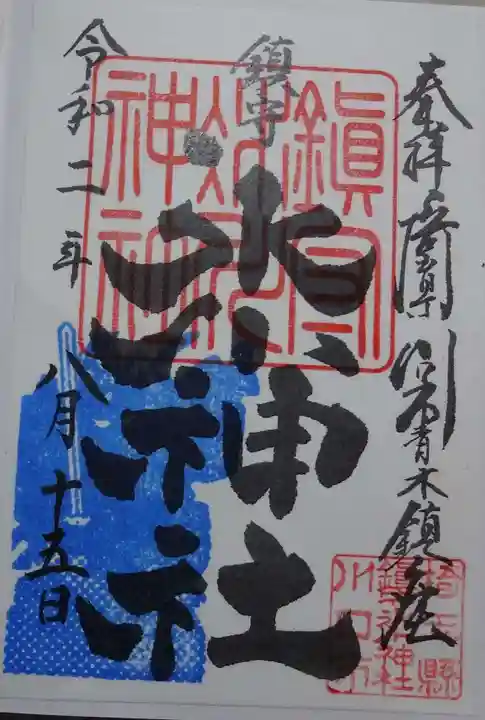 奉拝 埼玉県川口市青木鎮座
鎮守
氷川神社
令和二年八月十五日
鎮守
氷川
神社
埼玉縣
鎮守氷川神社
川口市